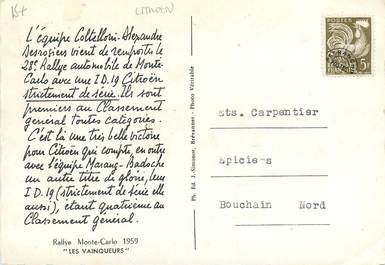 15+
CITROËN
L'équipe Coltelloni-Alexandre
Desrosiers vient de remporter le
28e Rallye automobile de Monte-
Carlo avec une I.D. 19 Citroën
strictement de série. Ils sont
premiers au Classement
général toutes catégories.
C'est là une très belle victoire
pour Citroën qui compte, en outre
avec l'équipe Marang-Badoche
un autre titre de gloire, leur
I.D 19 (strictement de série elle
aussi), étant quatrième au
Classement général.
Rallye Monte-Carlo 1959
"LES VAINQUEURS"
Ph. Ed. J.-Simonot, Brévannes - Photo Véritable
POSTES
5F
Ets. Carpentier
Epiciers
Bouchain Nord